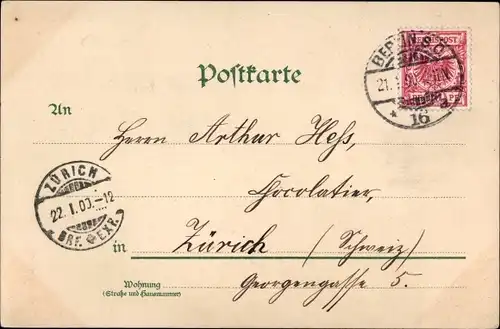 BERLIN S.O.
REICHSPOST
21. 1.
PF.
* 16
Postkarte
An Herrn Arthur Hess,
Chocolatier,
ZÜRICH
22. I. 00.–12
BRF. EXP.
in Zürich (Schweiz)
Wohnung
(Straße und Hausnummer)
Georgengasse 5.